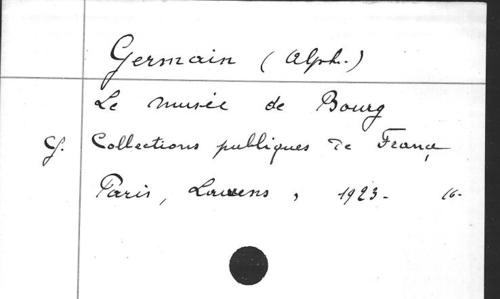 Germain (Alph.)
Le musée de Bourg
Cf. Collections publiques de France
Paris, Laurens, 1923- 16-